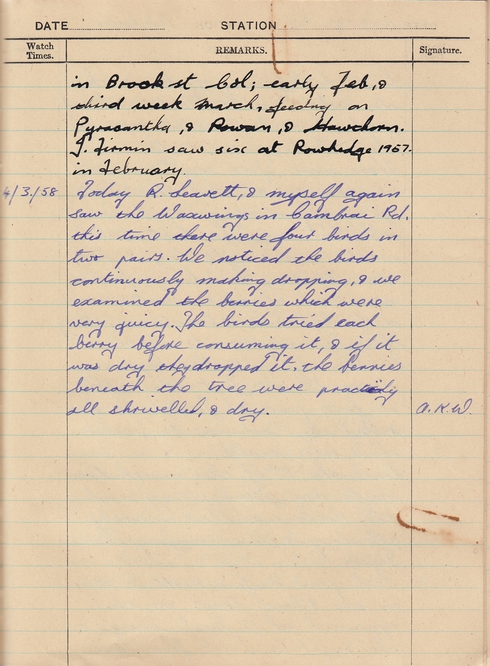 DATE STATION
Watch Times. REMARKS. Signature.
in Brook st Col; early Feb, &
third week March, feeding on
Pyracantha, & Rowan, & Hawthorn.
J. Firmin saw six at Rowhedge 1957.
in February.
4/3/58 Today R. Leavett, & myself again
saw the Waxwings in Cambrai Rd.
this time there were four birds in
two pairs. We noticed the birds
continuously making dropping, & we
examined the berries which were
very juicy. The birds tried each
berry before consuming it, & if it
was dry they dropped it. the berries
beneath the tree were
all shrivelled, & dry. A.K.W.